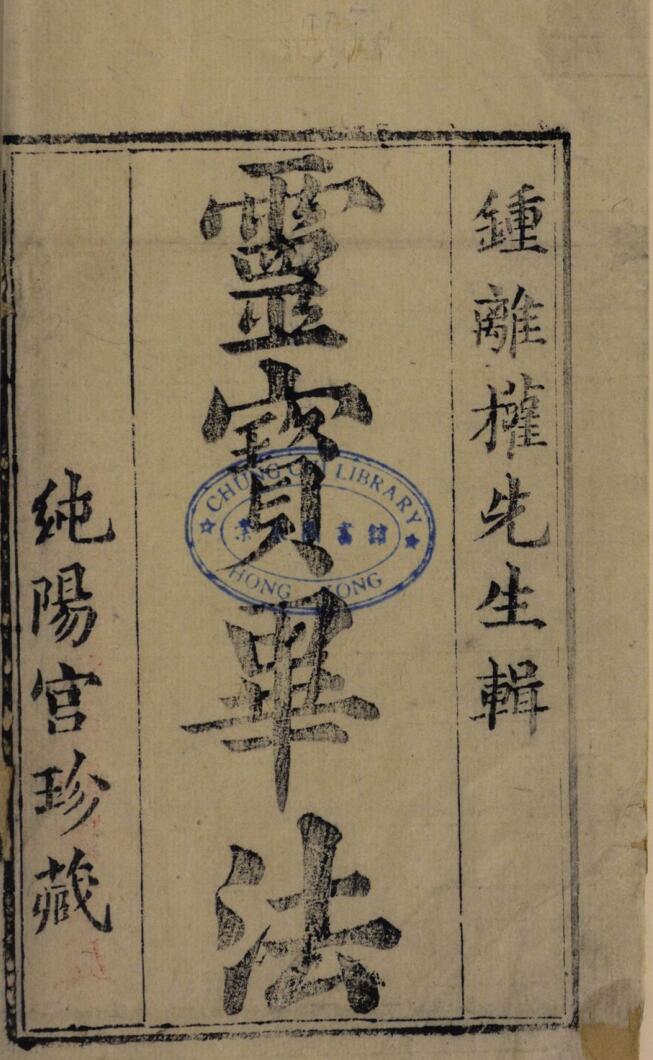 鍾離權先生輯
靈寶畢法
純陽宮珍藏
CHUNG C LIBRARY
書館
HONG ONG